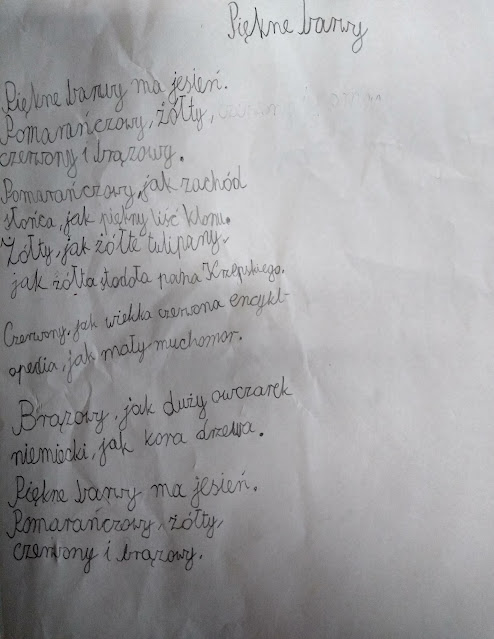 Piękne barwy
Piękne barwy ma jesień.
Pomarańczowy, żółty,
czerwony i brązowy.
Pomarańczowy, jak zachód
słońca, jak piękny liść klonu.
Żółty, jak żółte tulipany,
jak żółta stodoła pana Krzepskiego.
Czerwony, jak wielka czerwona encykl-
opedia, jak mały muchomor.
Brązowy, jak duży owczarek
niemiecki, jak kora drzewa.
Piękne barwy ma jesień.
Pomarańczowy, żółty,
czerwony i brązowy.